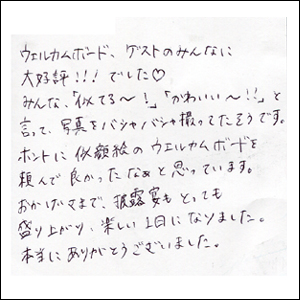 ウェルカムボード、ゲストのみんなに
大好評!!!でした♡
みんな、「似てる〜!」「かわいい〜!!」と
言って、写真をバシャバシャ撮ってたそうです。
ホントに似顔絵のウェルカムボードを
頼んで良かったなぁと思っています。
おかげさまで、披露宴もとっても
盛り上がり、楽しい1日になりました。
本当にありがとうございました。